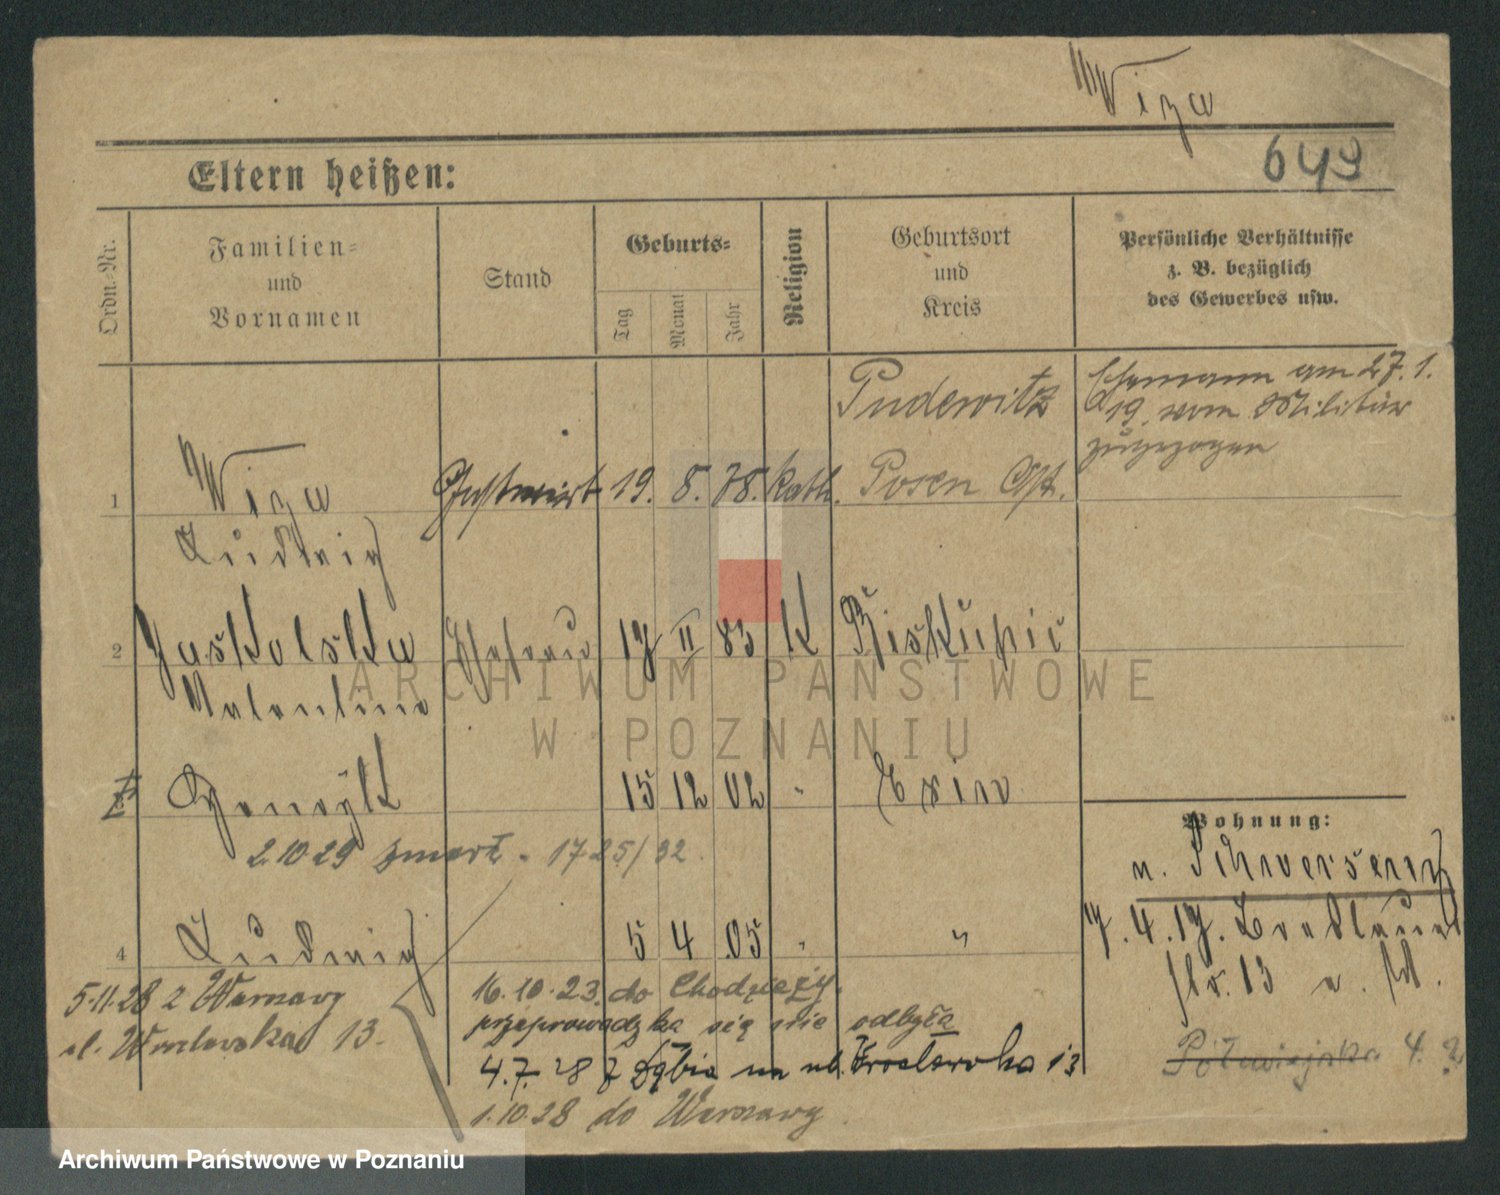 Wiza
649
Eltern heißen:
Ordn.-Nr.
Familien-
und
Vornamen
Stand
Geburts-
Tag
Monat
Jahr
Religion
Geburtsort
und
Kreis
Persönliche Verhältnisse
z. B. bezüglich
des Gewerbes usw.
1
Wiza
Ludwig
Gastwirt
19. 8. 78.
kath.
Pudewitz
Posen Ost.
Ehemann am 27. 1.
19. vom Militär
zugezogen
2
Jaskolska
Valentine
Ehefrau
17 II 83
K
Biskupic
Henryk
15 12 02
"
Exin
2.10.29 zmarł. 1725/32
4
Ludwig
5 4 05
"
"
Wohnung:
n. Schwersenz
17. 4. 17.
str. 13
5.11.28 z Warszawy
ul. Wrocławska 13.
16.10.23. do Chodzieży.
przeprowadzka się nie odbyła
4.7.28 z Dębia na ul. Wrocławska 13
1.10.28 do Warszawy
Półwiejska 4.
ARCHIWUM PAŃSTWOWE
W POZNANIU
Archiwum Państwowe w Poznaniu